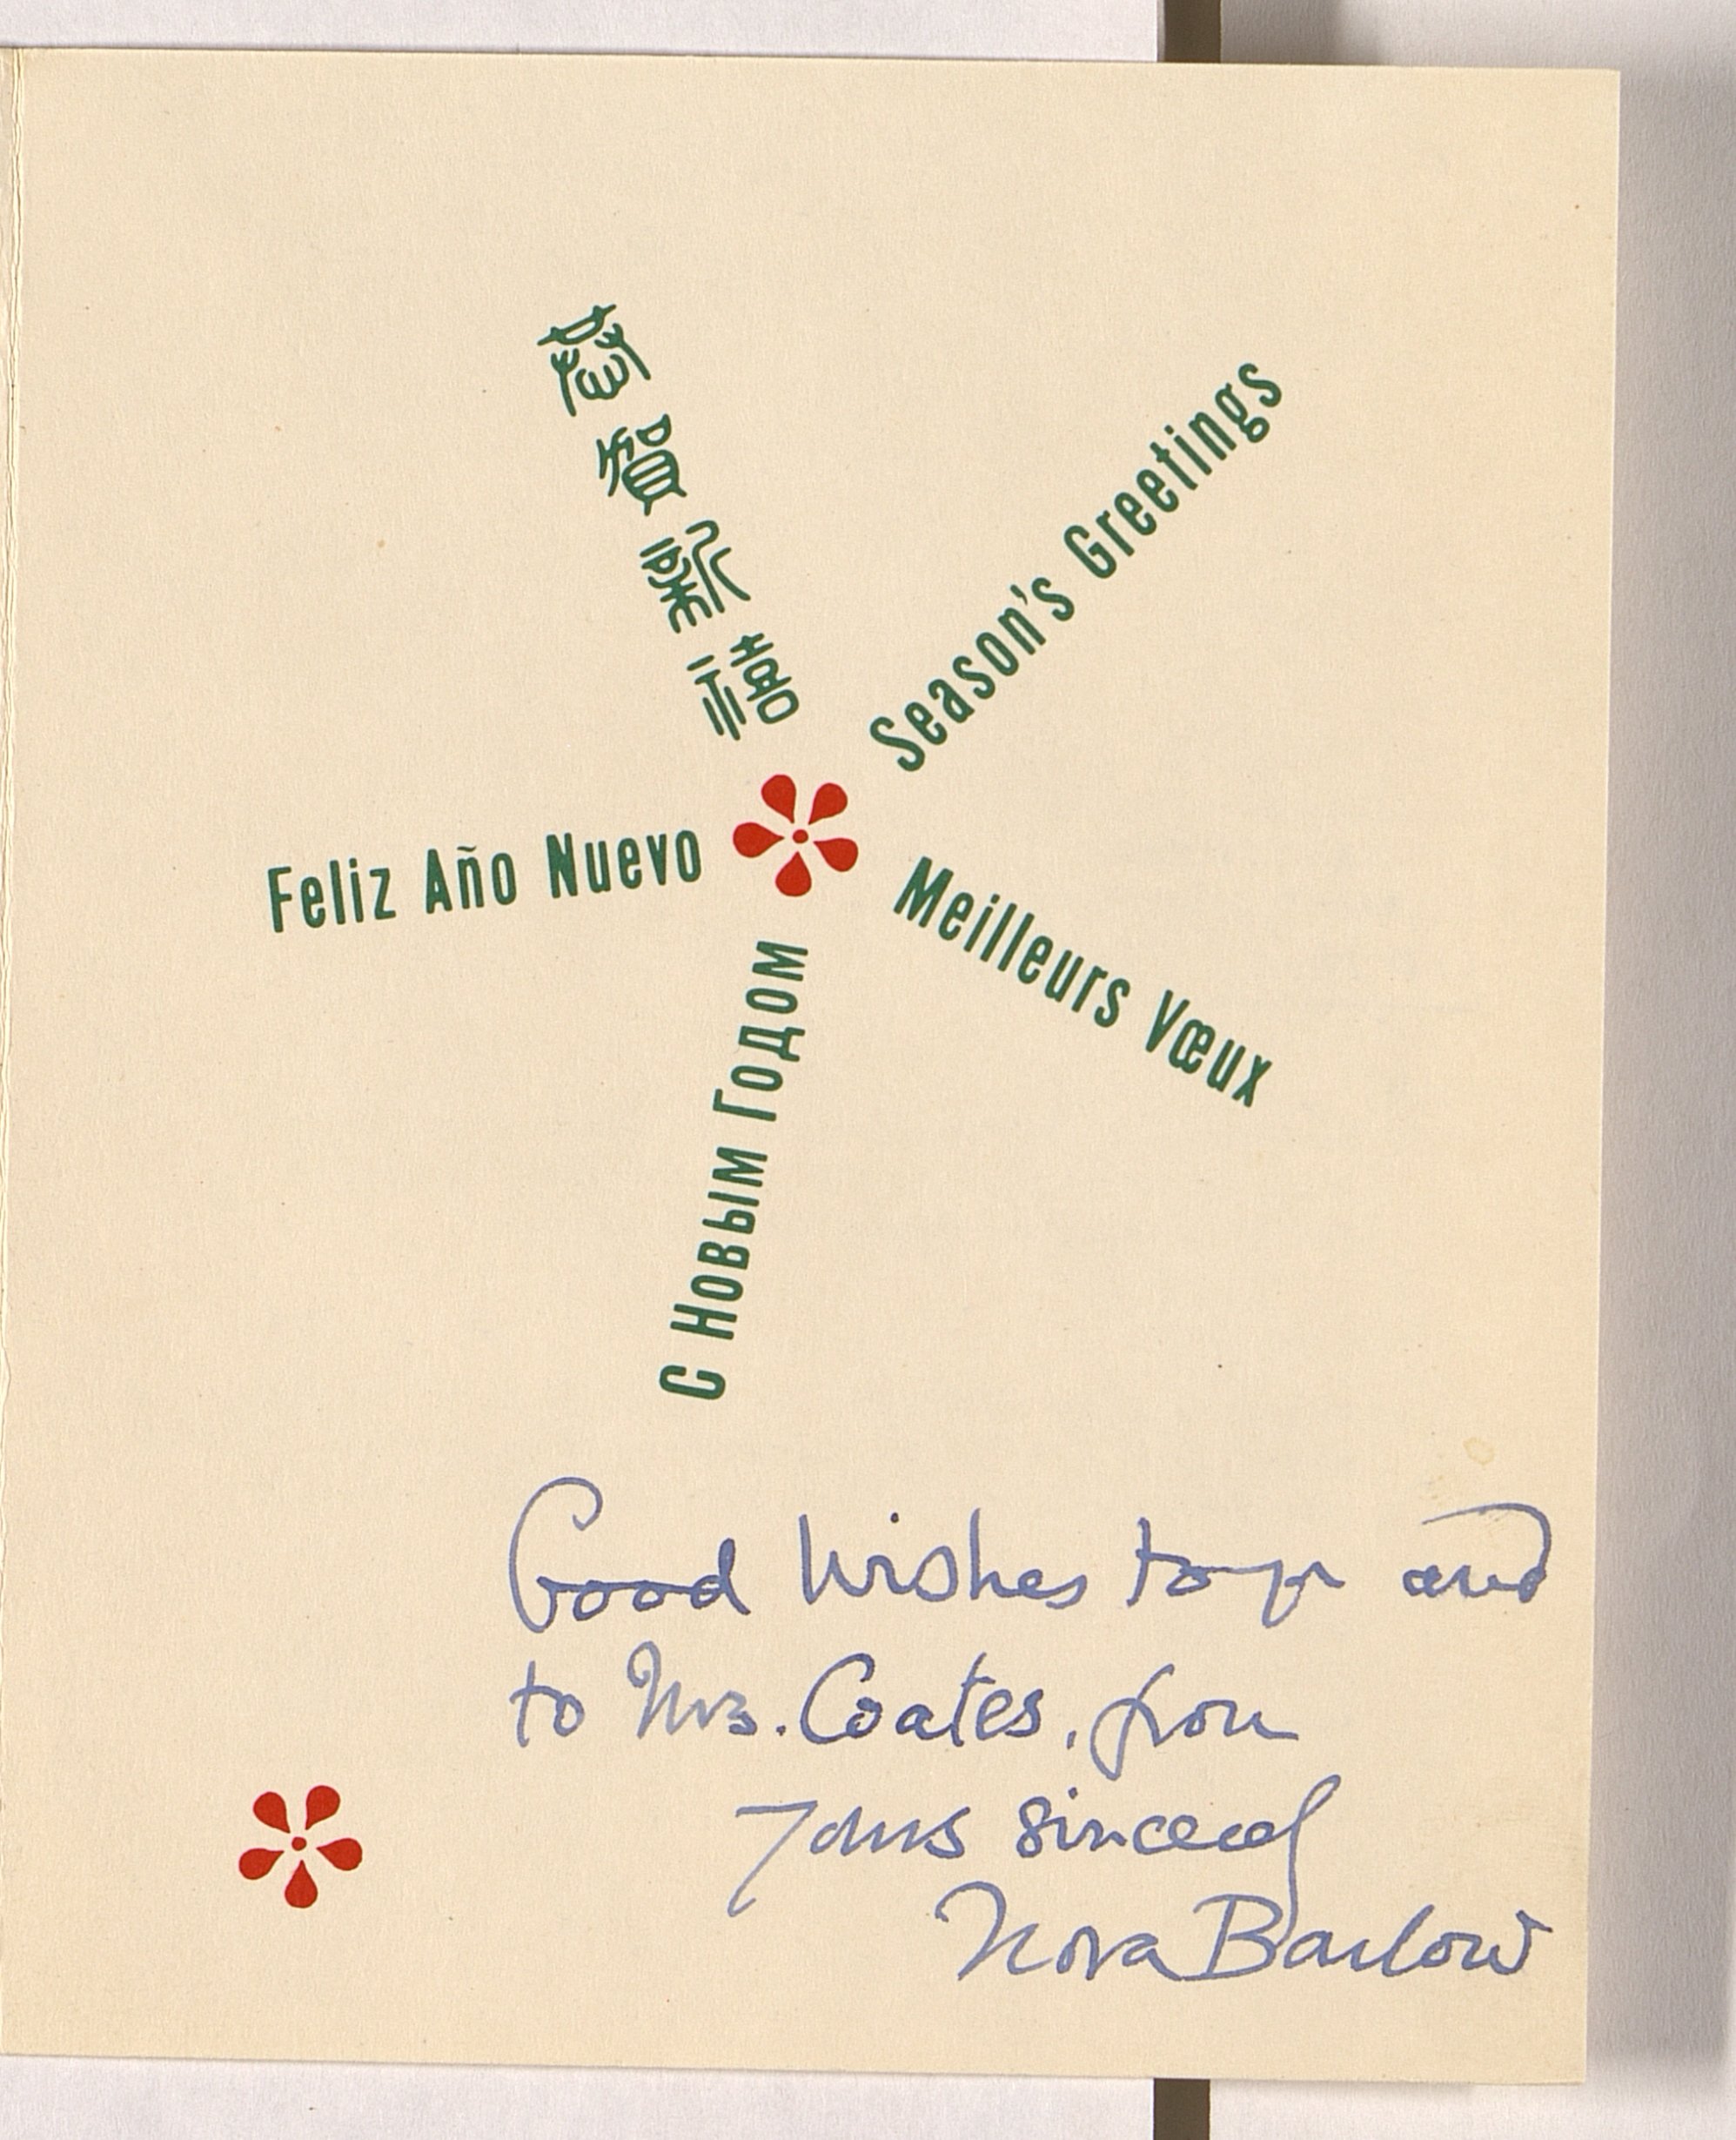 恭賀新禧
Season's Greetings
Feliz Año Nuevo
Meilleurs Vœux
С Новым Годом
Good Wishes to you and
to Mrs. Coates, from
Yours sincerely
Nora Barlow